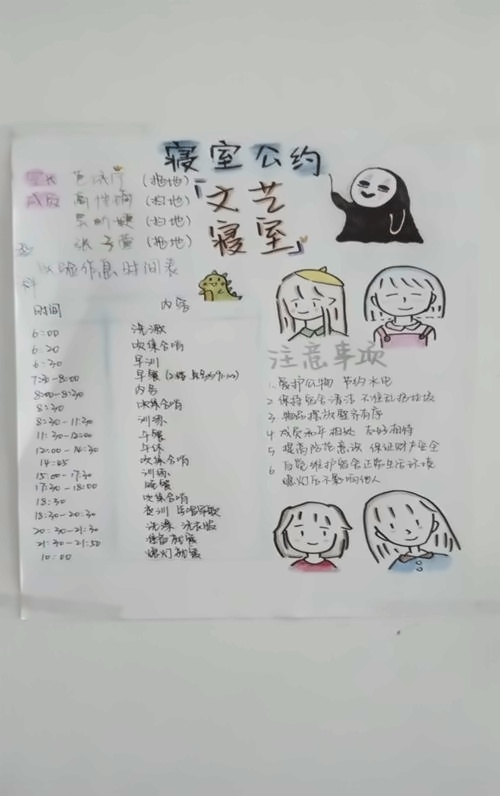 寝室公约
「文艺
寝室」
室长 (拖地)
成员 (扫地)
(扫地)
张子萱 (拖地)
作息时间表
时间 内容
6:00 洗漱
6:20 吹集合哨
6:30 早训
7:30-8:00 早餐
8:00-8:30 内务
8:30 吹集合哨
8:30-11:30 训练
11:30-12:00 午餐
12:00-14:30 午休
14:05 吹集合哨
15:00-17:30 训练
17:30-18:00 晚餐
18:30 吹集合哨
18:30-20:30 夜训
20:30-21:30 洗澡 洗衣服
21:30-21:50 准备就寝
10:00 熄灯就寝
注意事项
1、爱护公物 节约水电
2、保持宿舍清洁 不准乱扔垃圾
3、物品摆放整齐有序
4 成员和平相处 友好相待
5 提高防范意识 保证财产安全
6 自觉维护宿舍正常生活环境
熄灯后不影响他人